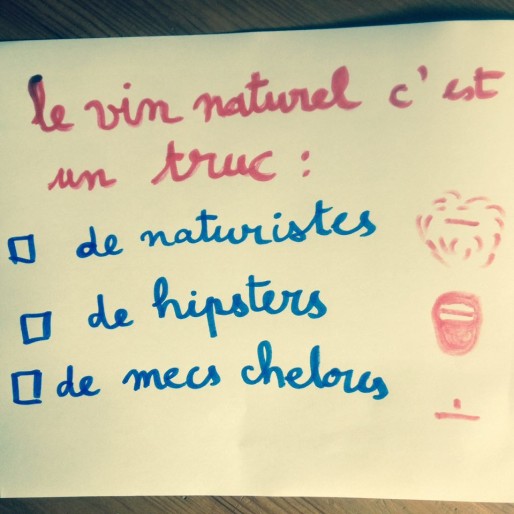 le vin naturel c'est
un truc :
de naturistes
de hipsters
de mecs chelous